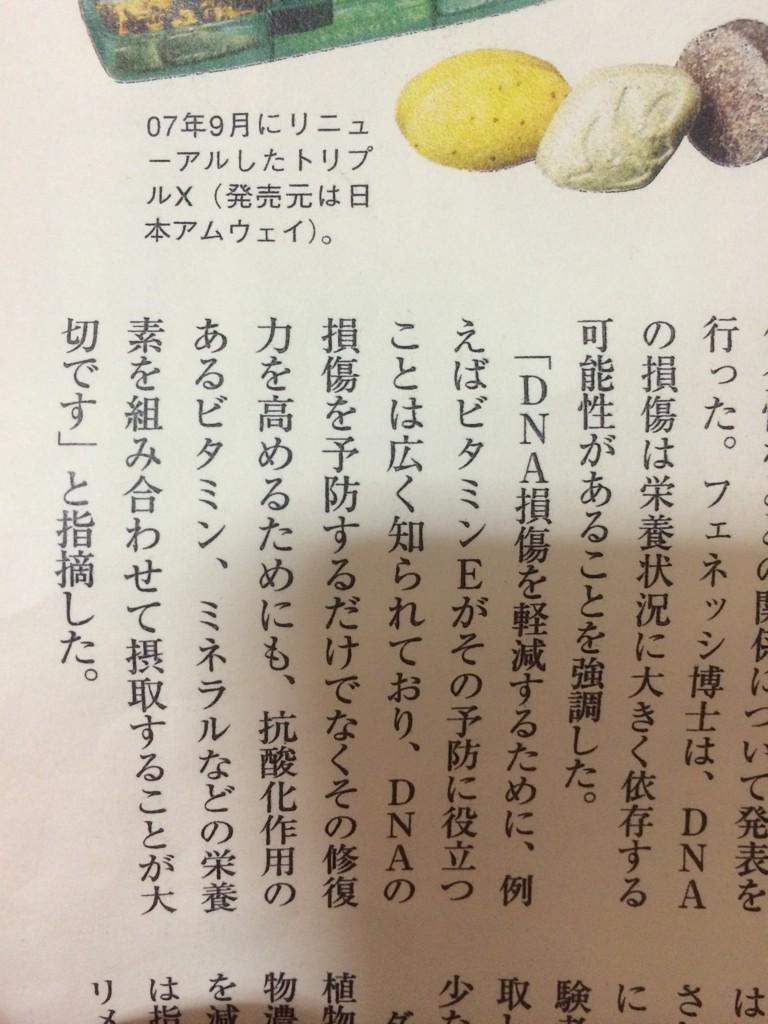 07年9月にリニュ
ーアルしたトリプ
ルX（発売元は日
本アムウェイ）。
の関係について発表を
行った。フェネッシ博士は、DNA
の損傷は栄養状況に大きく依存する
可能性があることを強調した。
「DNA損傷を軽減するために、例
えばビタミンEがその予防に役立つ
ことは広く知られており、DNAの
損傷を予防するだけでなくその修復
力を高めるためにも、抗酸化作用の
あるビタミン、ミネラルなどの栄養
素を組み合わせて摂取することが大
切です」と指摘した。
は
さ
に
験
取し
少な
ダ
植物
物濃
を減
は指
リメ